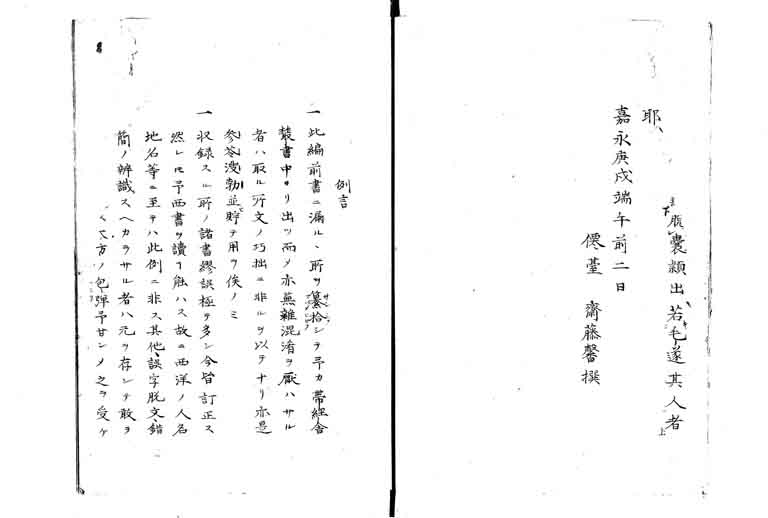 脱囊穎出若毛遂其人者
耶、
嘉永庚戌端午前二日
僊臺 齋藤馨撰
例言
一 此編前書ニ漏ル、所ヲ纂拾シテ予カ帶經舎
叢書中ヨリ出ツ而メ亦蕪雜混淆ヲ厭ハサル
者ハ取ル所文ノ巧拙ニ非ルヲ以テナリ亦是
參苓溲勃並貯テ用ヲ俟ノミ
一 収録スル所ノ諸書繆誤極テ多シ今皆訂正ス
然レ𪜈予西書ヲ讀ヿ能ハス故ニ西洋ノ人名
地名等ニ至テハ此例ニ非ス其他誤字脱文錯
簡ノ辨識スヘカラサル者ハ元ヲ存シテ敢ヲ
大方ノ包彈予甘シメ之ヲ受ケ